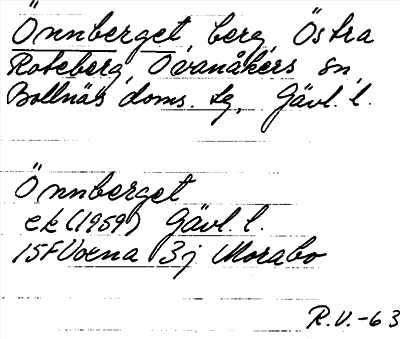 Önnberget, berg, Östra
Roteberg, Ovanåkers sn,
Bollnäs doms. tg, Gävl. l.
Önnberget
ek (1959) Gävl. l.
15F Voxna 3j Morabo
R.V.-63